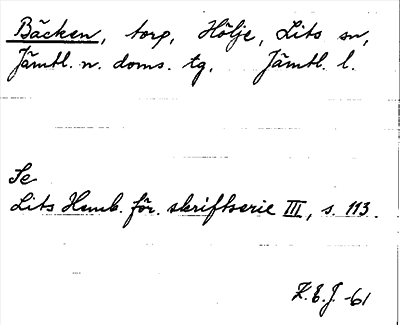 Bäcken, torp, Hölje, Lits sn,
Jämtl. n. doms. tg. Jämtl. l.
Se
Lits Hemb. för. skriftserie III, s. 113.
K.E.J. -61